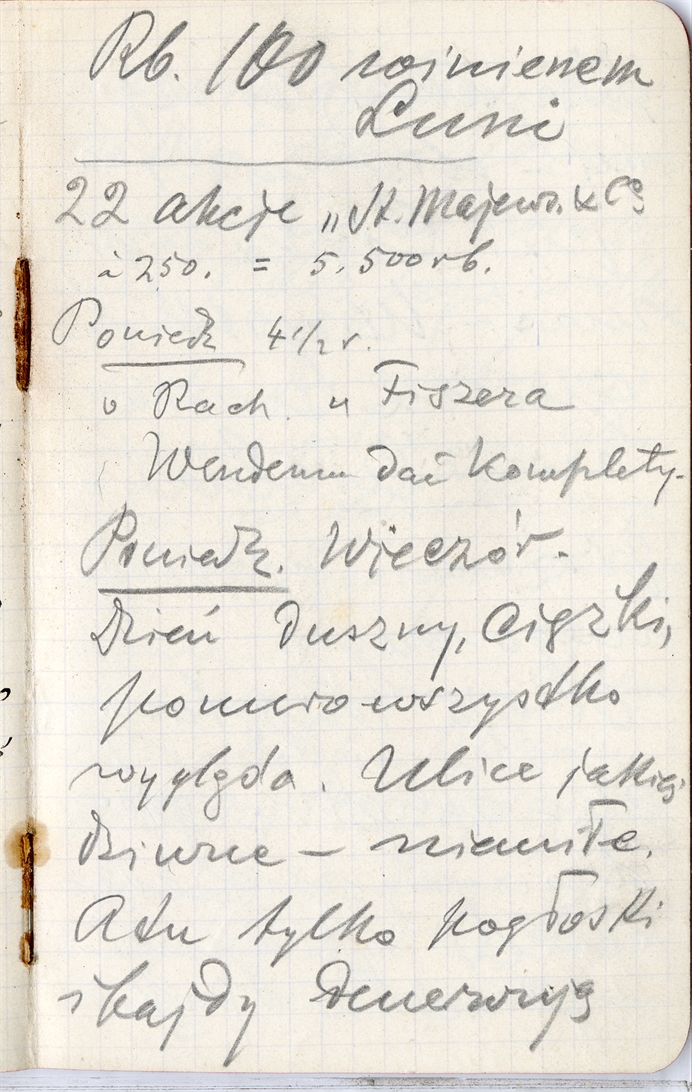 Rb. 100 imieniem
Luni
22 akcje „St. Majews. & Co
à 250. = 5.500 rb.
Poniedz 4 1/2 r.
v Rach. u Fiszera
Wendemu dać komplety.
Poniedz. Wieczór.
Dzień duszny, ciężki,
ponuro wszystko
wygląda. Ulice jakieś
dziwne – niemiłe.
A tu tylko pogłoski
i bajdy denerwują